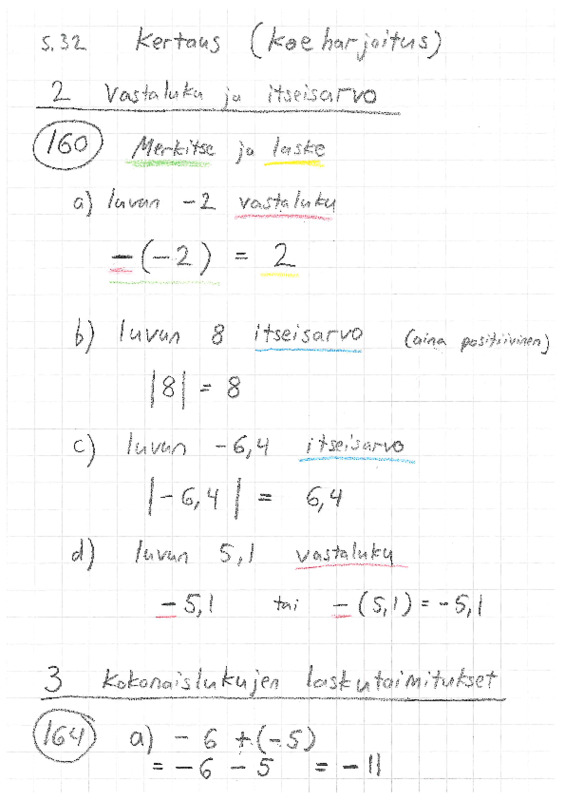 s.32 Kertaus (koeharjoitus)
2 Vastaluku ja itseisarvo
160 Merkitse ja laske
a) luvun -2 vastaluku
-(-2) = 2
b) luvun 8 itseisarvo (aina positiivinen)
|8| = 8
c) luvun -6,4 itseisarvo
|-6,4| = 6,4
d) luvun 5,1 vastaluku
-5,1 tai -(5,1) = -5,1
3 Kokonaislukujen laskutoimitukset
164 a) -6 +(-5)
= -6 - 5 = -11